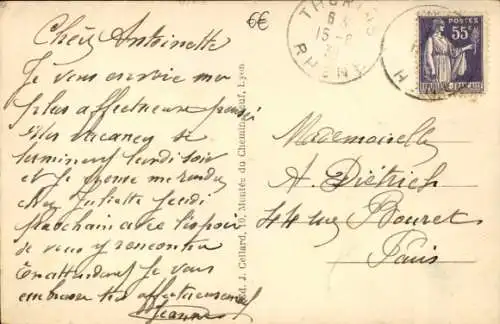 Chère Antoinette
Je vous envoie ma
plus affectueuse pensée
Mes vacances se
terminent lundi soir
et je pense me rendre
chez Juliette jeudi
prochain avec l'espoir
de vous y rencontrer
En attendant je vous
embrasse très affectueusement
Jeanne
Éd. J. Cellard, 10, Montée du Chemin-Neuf, Lyon
€
THURINS
RHONE
POSTES
55c
REPUBLIQUE FRANÇAISE
Mademoiselle
A. Diétrich
44 rue Bouret
Paris